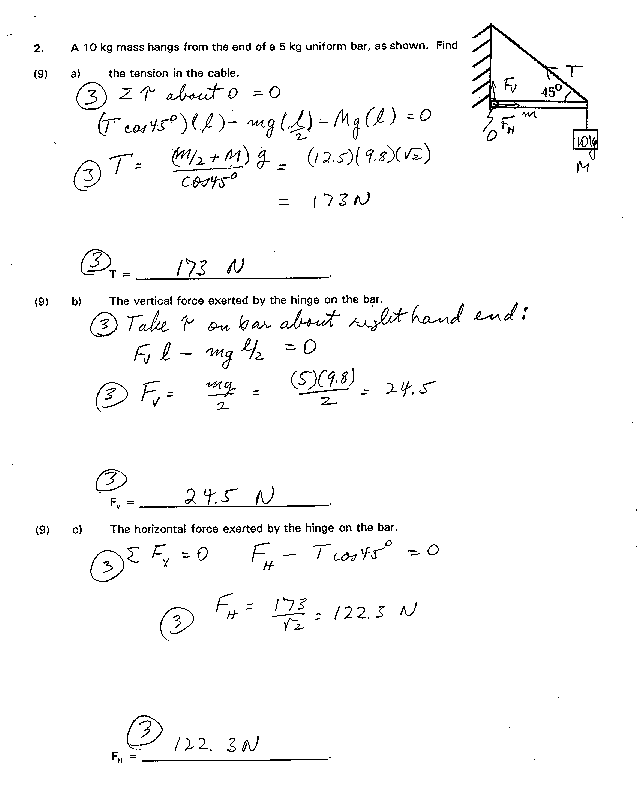 2. A 10 kg mass hangs from the end of a 5 kg uniform bar, as shown. Find
T
F_V
45°
m
F_H
O
10 kg
M
(9) a) the tension in the cable.
③ Σ τ about O = 0
(T cos45°)(l) - mg(l/2) - Mg(l) = 0
③ T = (m/2 + M) g / cos45° = (12.5)(9.8)(√2)
= 173 N
③ T = 173 N
(9) b) The vertical force exerted by the hinge on the bar.
③ Take τ on bar about right hand end:
F_V l - mg l/2 = 0
③ F_V = mg/2 = (5)(9.8)/2 = 24.5
③
F_v = 24.5 N
(9) c) The horizontal force exerted by the hinge on the bar.
③ Σ F_x = 0 F_H - T cos45° = 0
③ F_H = 173/√2 = 122.3 N
③
F_H = 122.3N